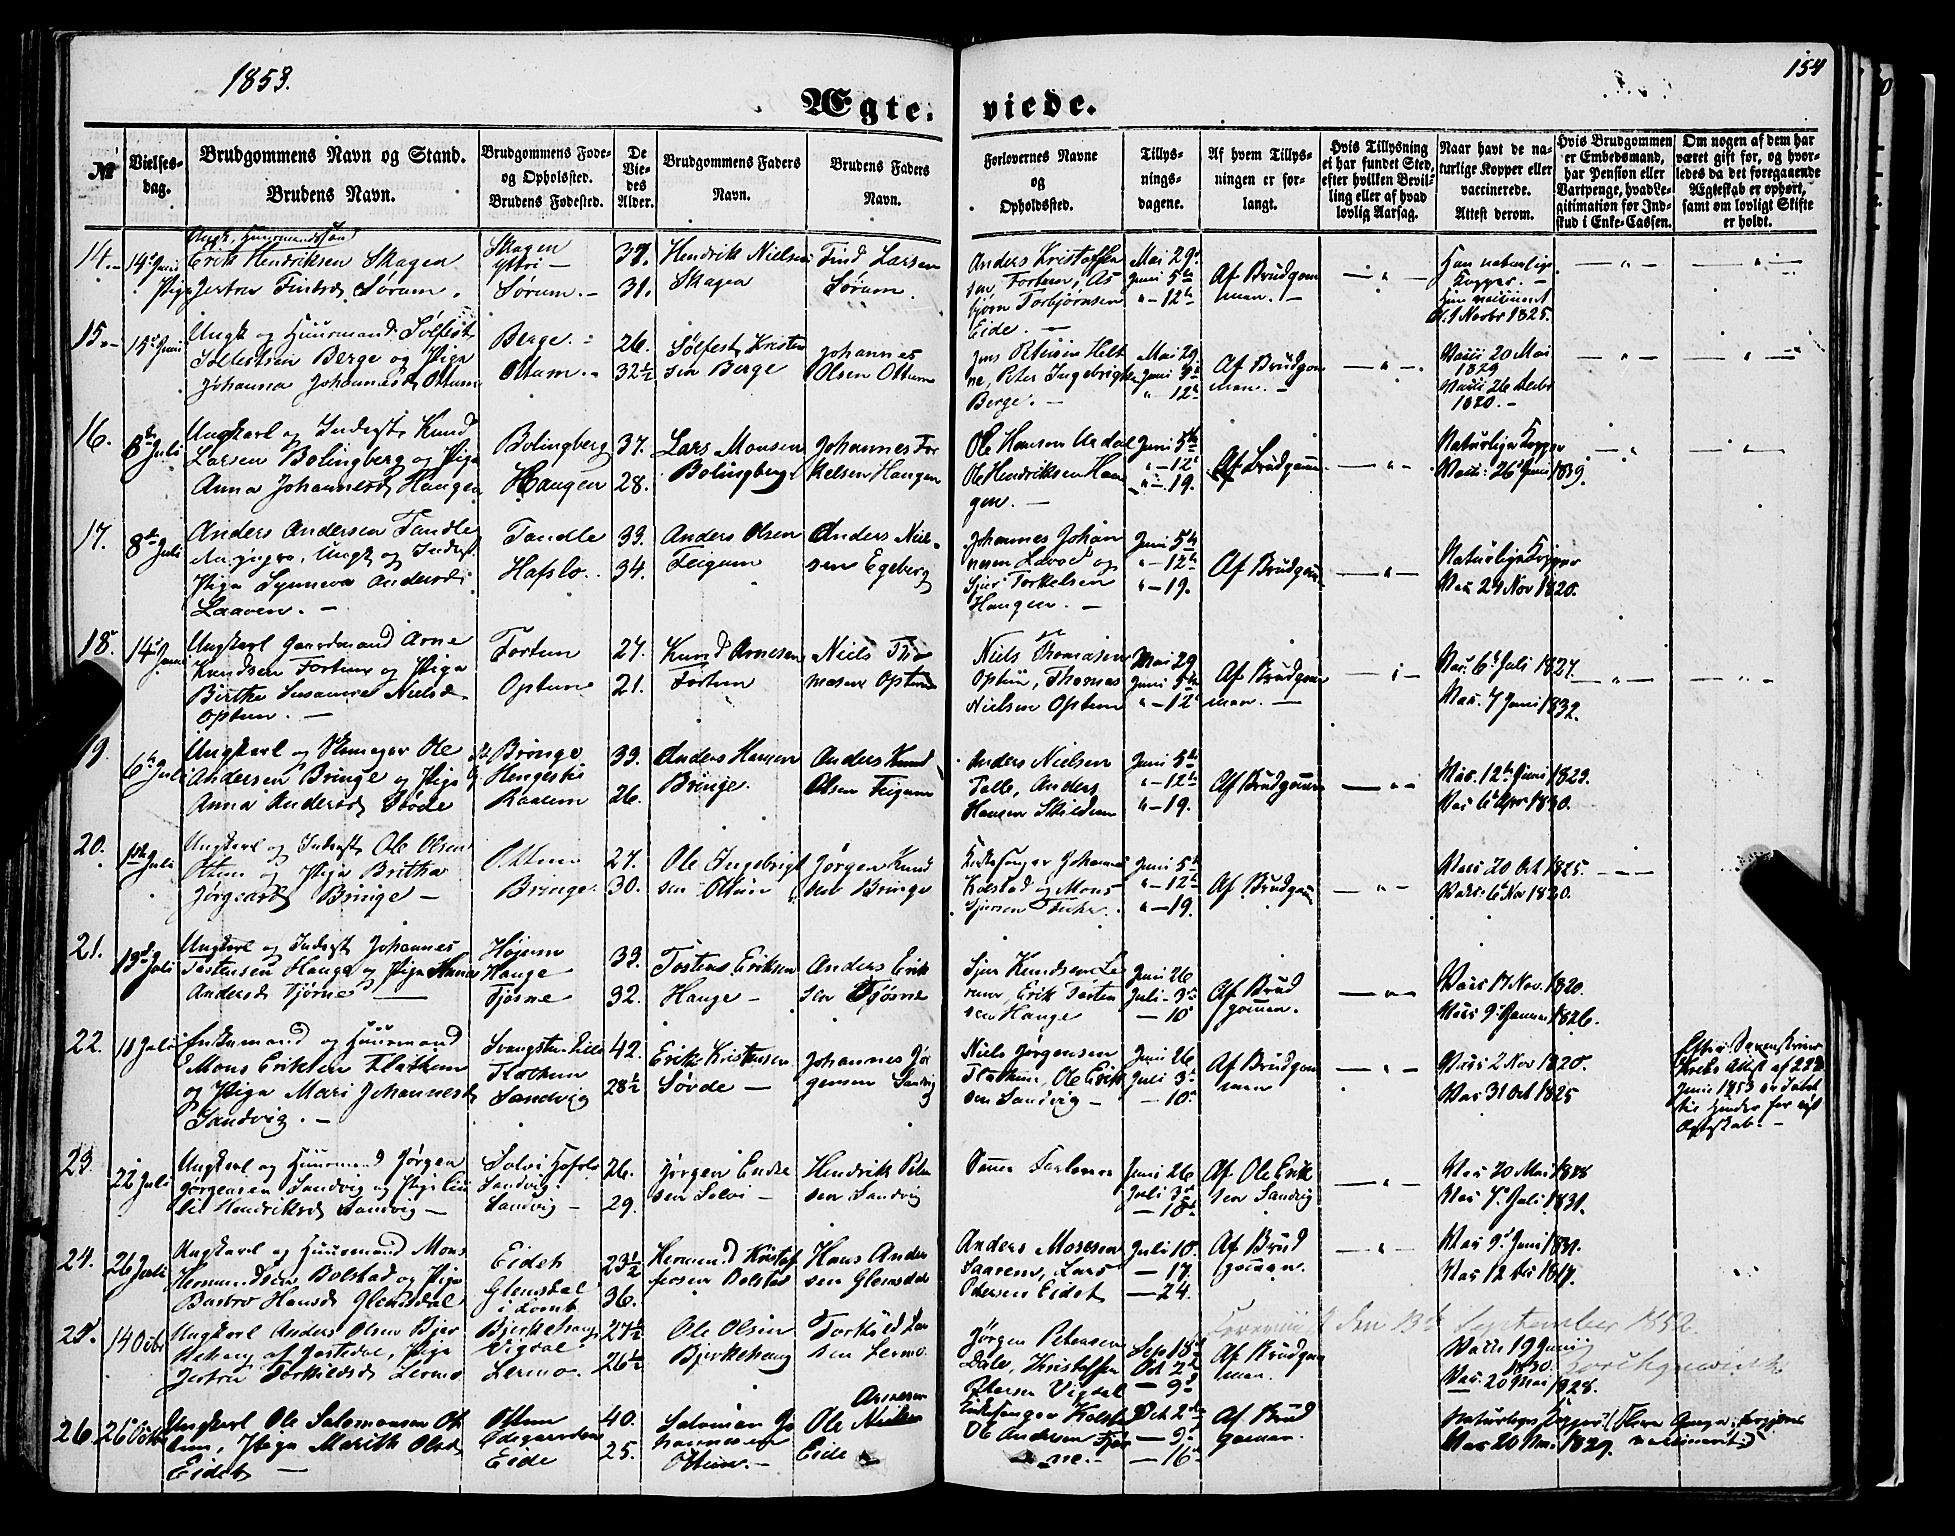 1853.
154
Ægte-
viede.
№
Vielses-
dag.
Brudgommens Navn og Stand.
Brudens Navn.
Brudgommens Føde-
og Opholdssted.
Brudens Fødested.
De
Vie-
des
Alder.
Brudgommens Faders
Navn.
Brudens Faders
Navn.
Forlovernes Navne
og
Opholdssted.
Tillys-
nings-
dagene.
Af hvem Tillys-
ningen er for-
langt.
Hvis Tillysning
ei har fundet Sted,
efter hvilken Bevil-
ling eller af hvad
lovlig Aarsag.
Naar havt de na-
turlige Kopper eller
vaccinerede.
Attest derom.
Hvis Brudgommen
er Embedsmand,
har Pension eller
Vartpenge, hvad Le-
gitimation for Ind-
skud i Enke-Cassen.
Om nogen af dem har
været gift før, og hvor-
ledes da det foregaaende
Ægteskab er ophørt,
samt om lovligt Skifte
er holdt.
14.
14 Juni
Erik Hendriksen Skagen
Pige Jertru Finds. Sørum.
Skagen
Sørum.
37.
31.
Hendrik Nielsen
Skagen
Find Larsen
Sørum.
Anders Kristoffer-
sen Fortun, As
bjørn Torbjørnsen
Eide.
Mai 29
Juni 5te
" - 12te
Af Brudgom
man.
Han naturlige
Kopper.
Hun vaccineret
d. 9 Novbr 1825.
15.
15 Juni
Ungk og Huusmand Sølfest
Solfestsen Berge og Pige
Johanna Johannesd. Ottum
Berge.
Ottum.
26.
32½
Sølfest Kristen
sen Berge
Johannes
Olsen Ottum
Jens Petersen Helt
ne, Peter Ingebrigts
Berge.
Mai 29
Juni 5te
" 12te
Af Brudgom
man.
Vacc 20 Mai
1829
Vacc 26 Decbr
1820.
16.
8de Juli
Ungkarl og Inderst Knud
Larsen Bolingberg og Pige
Anna Johannesd. Haugen
Bolingberg
Haugen
37.
28.
Lars Monsen
Bolingberg
Johannes Tor
kelsen Haugen
Ole Hansen Urdal
Ole Hendriksen Hau
gen.
Juni 5te
" - 12te
" - 19.
Af Brudgom.
Naturlige Kopper
Vacc: 26 Juni 1839.
17.
8de Juli
Anders Andersen Tandle
Ungk og Inderst.
Pige Synneva Andersd.
Laaven.
Tandle
Hafslo.
33.
34.
Anders Olsen
Feigum
Anders Niel-
sen Egeberg
Johannes Johan
nesen Lavoll og
Sjur Torkelsen
Haugen.
Juni 5te
" - 12te
" - 19.
Af Brudgom
Naturlige Kopper
Vac 24 Nov 1820.
18.
14 Juni
Ungkarl Gaardmand Arne
Knudsen Fortun og Pige
Birthe Susanne Nielsd.
Optun.
Fortun
Optun
27.
21.
Knud Arnesen
Fortun
Niels Tho
masen Optun
Niels Thomasen
Optun, Thomas
Nielsen Optun
Mai 29
Juni 5te
" - 12te
Af Brudgom
man.
Vac. 6 Juli 1827.
Vac. 7 Juni 1832.
19.
6te Juli
Ungkarl og Skomager Ole
Andersen Bringe og Pige
Anna Andersd.
Bringe
33.
26.
Anders Hansen
Bringe.
Anders Knud
Olsen Feigum
Anders Nielsen
Talle, Anders
Hansen Skildum
Juni 5te
" - 12te
" - 19.
Af Brudgommen
Vac. 12te Juni 1823.
Vac 6te Apr 1830.
20.
Juli
Ungkarl og Inderst Ole Olsen
Ottum og Pige Brithe
Jørgensd. Bringe
Ottum
Bringe.
27.
30.
Ole Ingebrigt
sen Ottum
Jørgen Knud
sen Bringe
Kirkesanger Johannes
Kolstad og Mons
Sjursen
Juni 5te
" - 12te
" - 19.
Af Brudgom
Vac 20 Oct 1825.
Vac. 6 Nov 1820.
21.
13de Juli
Ungkarl og Inderst Johannes
Tostensen Hauge og Pige
Andersd. Fjøsne
Højum
Hauge
Fjøsne
33.
32.
Tosten Eriksen
Hauge
Anders Erik
sen Fjøsne
Sjur Knudsen
Erik Tosten
sen Hauge
Juni 26
Juli - 3de
- 10
Af Brud
gommen.
Vac 17 Nov. 1820.
Vac 9 Januar 1826.
22.
18 Juli
Enkemand og Huusmand
Mons Eriksen Flathem
og Pige Mari Johannesd.
Sandvig.
Flathem
Sandvig
42.
28½
Erik Kristensen
Søvde
Johannes Jør
gensen Sandvig
Niels Jørgensen
Flathem, Ole Erik
sen Sandvig
Juni 26
Juli 3de
- 10
Af Brudgom
man
Vac 2 Nov 1820.
Vac 31 Oct 1825
Efter Sorenskriver
Attest af 22de
Juni 1853 er Intet
til Hinder for nyt
Ægteskab.
23.
22 Juli
Ungkarl og Huusmand Jørgen
Jørgensen Sandvig og Pige
Hendriksd. Sandvig
Solvi Hafslo
Sandvig.
Sandvig
26.
29.
Jørgen Endre
sen Solvi
Hendrik Peter
sen Sandvig
Samme Forlovere
Juni 26
Juli 3de
- 10de
Af Ole Erik
sen Sandvig
Vac 20 Mai 1828
Vac 7 Juli 1831.
24.
26 Juli
Ungkarl og Huusmand Mons
Hermundsen Bolstad og Pige
Hansd. Glemsdal
Eidet
Glemsdal
i Lomb
23½
36.
Hermund Kristof
fersen Bolstad
Hans Ander
sen Glemsdal
Anders Mosesen
Lars
Petersen Eidet
Juli 10.
- 17.
- 24.
Af Brud
gommen.
Vac 9 Juni 1831.
Vac 12 1817.
25.
14 Octbr
Ungkarl Anders Olsen Bjer
kehaug af Jostedal, Pige
Jertru Torkildsd. Lermo
Bjerkehaug
Vigdal
Lermo.
27½
26½
Ole Olsen
Bjerkehaug
Torkild Lar
sen Lermo.
Jørgen Petersen
Dale, Kristoffer
Petersen Vigdal
Sep 18
Oct 2
- 9
Af Brudgom
man.
den 13de September 1852.
Vacc 19 Juni
1830.
Vac. 20 Mai 1828.
26.
26 Octbr
Ungkarl Ole Salomonsen Ot
tum, Pige Marith Olsd.
Eidet
Ottum
Ødegaarden
Eide
40.
25.
Salomon Jo
hannesen
Ottum.
Arnesen
Ole Nielsen
Eide
Kirkesanger Kolstad
Ole Andersen Fjøs
ne.
Oct 2
- 9
- 16
Af Brud
gomman.
Naturlige Kopper
Vac 20 Mai 1829.